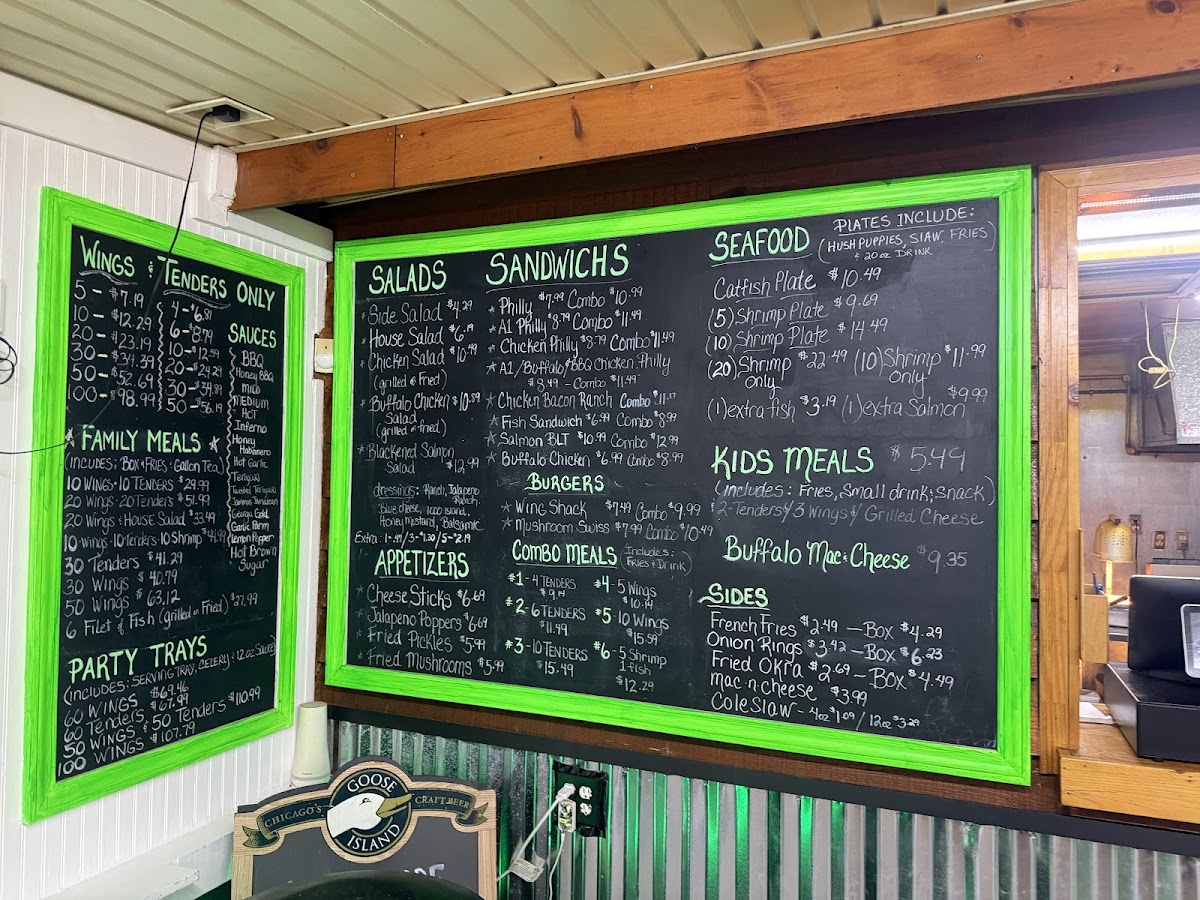 WINGS & TENDERS ONLY
5 - $7.19
10 - $12.29
20 - $23.19
30 - $34.39
50 - $52.69
100 - $98.99
4 - $6.81
6 - $8.79
10 - $12.59
20 - $24.29
30 - $34.89
50 - $56.19
SAUCES
BBQ
Honey BBQ
Mild
Medium
Hot
Inferno
Honey
Habanero
Hot Garlic
Teriyaki
Twisted Teriyaki
Georgia Gold
Garlic Parm
Lemon Pepper
Hot Brown
Sugar
FAMILY MEALS
(INCLUDES: BOX FRIES & Gallon Tea)
10 WINGS • 10 TENDERS $29.99
20 Wings • 20 Tenders $51.99
20 Wings & House Salad $33.49
10 wings • 10 Tenders • 10 Shrimp $44.99
30 Tenders $41.29
30 Wings $40.79
50 Wings $63.12
6 Filet of Fish (grilled or Fried) $27.99
PARTY TRAYS
(INCLUDES: SERVING TRAY, CELERY & 12oz Sauce)
60 WINGS $69.46
60 Tenders $67.99
50 WINGS & 50 Tenders $110.99
100 WINGS $107.79
SALADS
* Side Salad $4.29
* House Salad $6.19
* Chicken Salad $10.99
(grilled or Fried)
* Buffalo Chicken $10.59
Salad
(grilled or fried)
* Blackened Salmon
Salad $12.99
dressings: Ranch, Jalapeno
Ranch,
Blue cheese, 1000 island,
Honey Mustard, Balsamic
Extra: 1-.49/3-$1.30/5-$2.19
APPETIZERS
* Cheese Sticks $6.69
* Jalapeno Poppers $6.69
* Fried Pickles $5.99
* Fried Mushrooms $5.99
SANDWICHS
* Philly $7.99 Combo $10.99
* A1 Philly $8.79 Combo $11.49
* Chicken Philly $8.79 Combo $11.49
* A1/Buffalo/BBQ Chicken Philly
$8.49 - Combo $11.49
* Chicken Bacon Ranch Combo $11.17
* Fish Sandwich $6.99 Combo $8.99
* Salmon BLT $10.99 Combo $12.99
* Buffalo Chicken $6.99 Combo $8.99
BURGERS
* Wing Shack $7.49 Combo $9.99
* Mushroom Swiss $7.99 Combo $10.49
COMBO MEALS (Includes:
Fries & Drink)
#1 - 4 TENDERS
$9.19
#2 - 6 TENDERS
$11.99
#3 - 10 TENDERS
$15.49
#4 - 5 Wings
$10.19
#5 - 10 Wings
$15.59
#6 - 5 Shrimp
1 fish
$12.29
SEAFOOD
PLATES INCLUDE:
(HUSH PUPPIES, SLAW, FRIES)
& 20 oz DRINK
Catfish Plate $10.49
(5) Shrimp Plate $9.69
(10) Shrimp Plate $14.49
(20) Shrimp $22.49 (10) Shrimp $11.99
Only Only
(1) extra fish $3.19 (1) extra Salmon $9.99
KIDS MEALS $5.49
(includes: Fries, Small drink & snack)
2-Tenders / 3 Wings / Grilled Cheese
Buffalo Mac & Cheese $9.35
SIDES
French Fries $2.49 — Box $4.29
Onion Rings $3.42 — Box $6.23
Fried Okra $2.69 — Box $4.49
mac n cheese $3.99
Cole Slaw - 4oz $1.09 / 12oz $3.29
GOOSE
CHICAGO'S CRAFT BEER
ISLAND